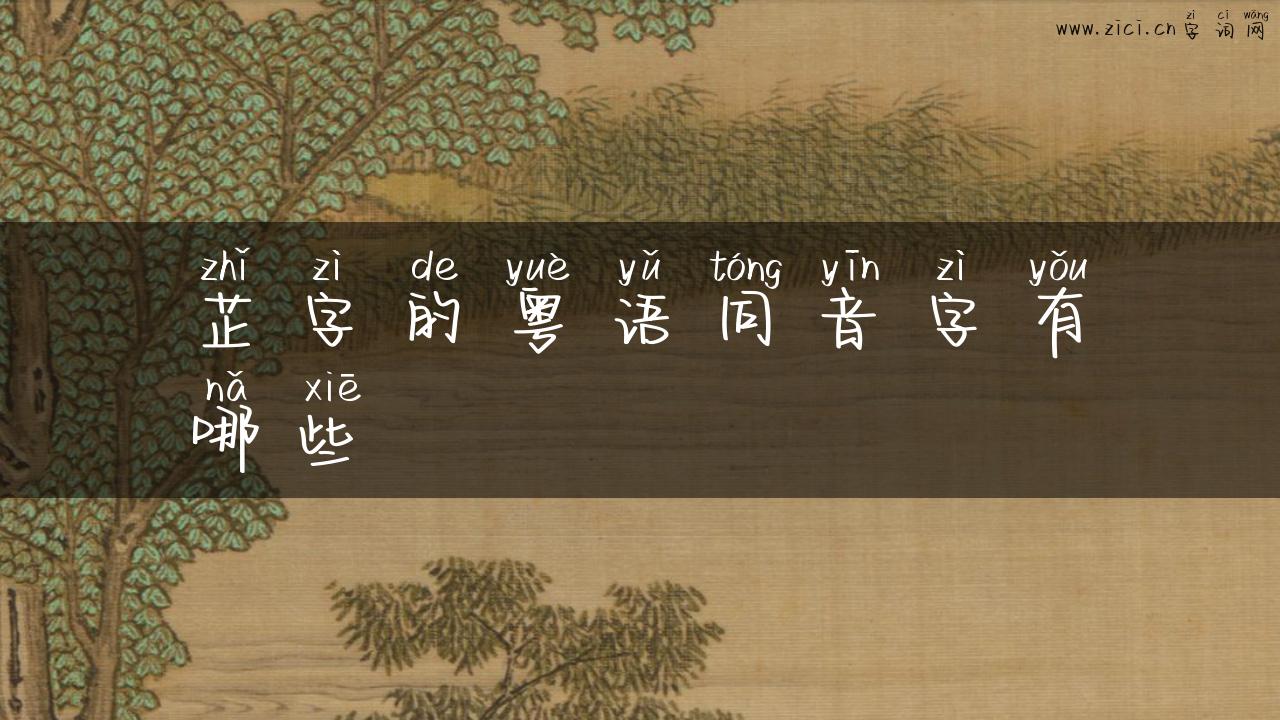 zì cí wǎng
www.zici.cn字词网
zhǐ zì de yuè yǔ tóng yīn zì yǒu
芷字的粤语同音字有
nǎ xiē
哪些